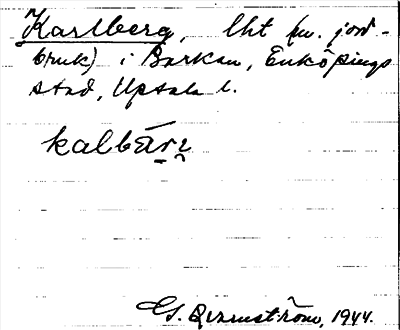 Karlberg, lht (m. jord-
bruk) i Barkan, Enköpings
stad, Upsala l.
kalbäri
G. Qvarnström, 1944.